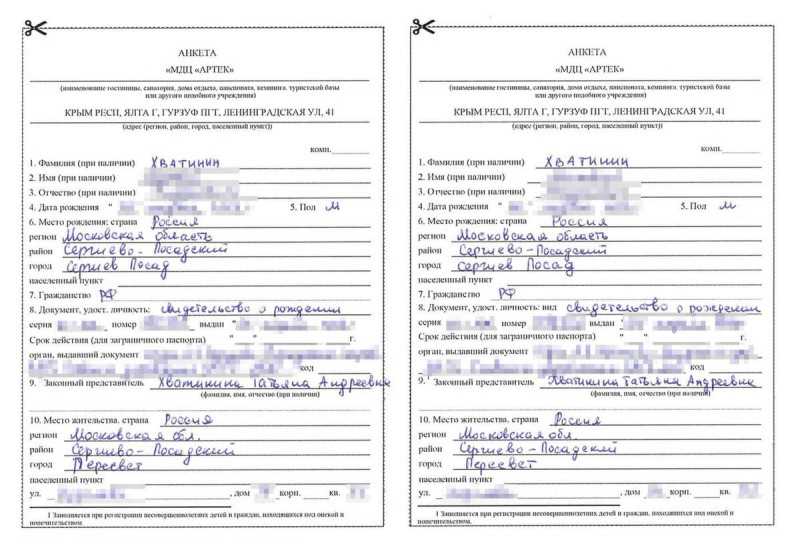 АНКЕТА
«МДЦ «АРТЕК»
(наименование гостиницы, санатория, дома отдыха, пансионата, кемпинга, туристской базы
или другого подобного учреждения)
КРЫМ РЕСП, ЯЛТА Г, ГУРЗУФ ПГТ, ЛЕНИНГРАДСКАЯ УЛ, 41
(адрес (регион, район, город, населенный пункт))
комн.
1. Фамилия (при наличии) ХВАТИНИН
2. Имя (при наличии)
3. Отчество (при наличии)
4. Дата рождения " 5. Пол М
6. Место рождения: страна Россия
регион Московская область
район Сергиево-Посадский
город Сергиев Посад
населенный пункт
7. Гражданство РФ
8. Документ, удост. личность: свидетельство о рождении
серия номер выдан "
Срок действия (для заграничного паспорта) " " г.
орган, выдавший документ
код
9. Законный представитель Хватикина Татьяна Андреевна
(фамилия, имя, отчество (при наличии)
10. Место жительства. страна Россия
регион Московская обл.
район Сергиево-Посадский
город Пересвет
населенный пункт
ул. , дом корп. кв.
1 Заполняется при регистрации несовершеннолетних детей и граждан, находящихся под опекой и
попечительством
АНКЕТА
«МДЦ «АРТЕК»
(наименование гостиницы, санатория, дома отдыха, пансионата, кемпинга, туристской базы
или другого подобного учреждения)
КРЫМ РЕСП, ЯЛТА Г, ГУРЗУФ ПГТ, ЛЕНИНГРАДСКАЯ УЛ, 41
(адрес (регион, район, город, населенный пункт))
комн.
1. Фамилия (при наличии) ХВАТИНИН
2. Имя (при наличии)
3. Отчество (при наличии)
4. Дата рождения " 5. Пол М
6. Место рождения: страна Россия
регион Московская область
район Сергиево-Посадский
город Сергиев Посад
населенный пункт
7. Гражданство РФ
8. Документ, удост. личность: вид свидетельство о рождении
серия номер выдан "
Срок действия (для заграничного паспорта) " " г.
орган, выдавший документ
код
9. Законный представитель Хватикина Татьяна Андреевна
(фамилия, имя, отчество (при наличии)
10. Место жительства. страна Россия
регион Московская обл.
район Сергиево-Посадский
город Пересвет
населенный пункт
ул. , дом корп. кв.
1 Заполняется при регистрации несовершеннолетних детей и граждан, находящихся под опекой и
попечительством.